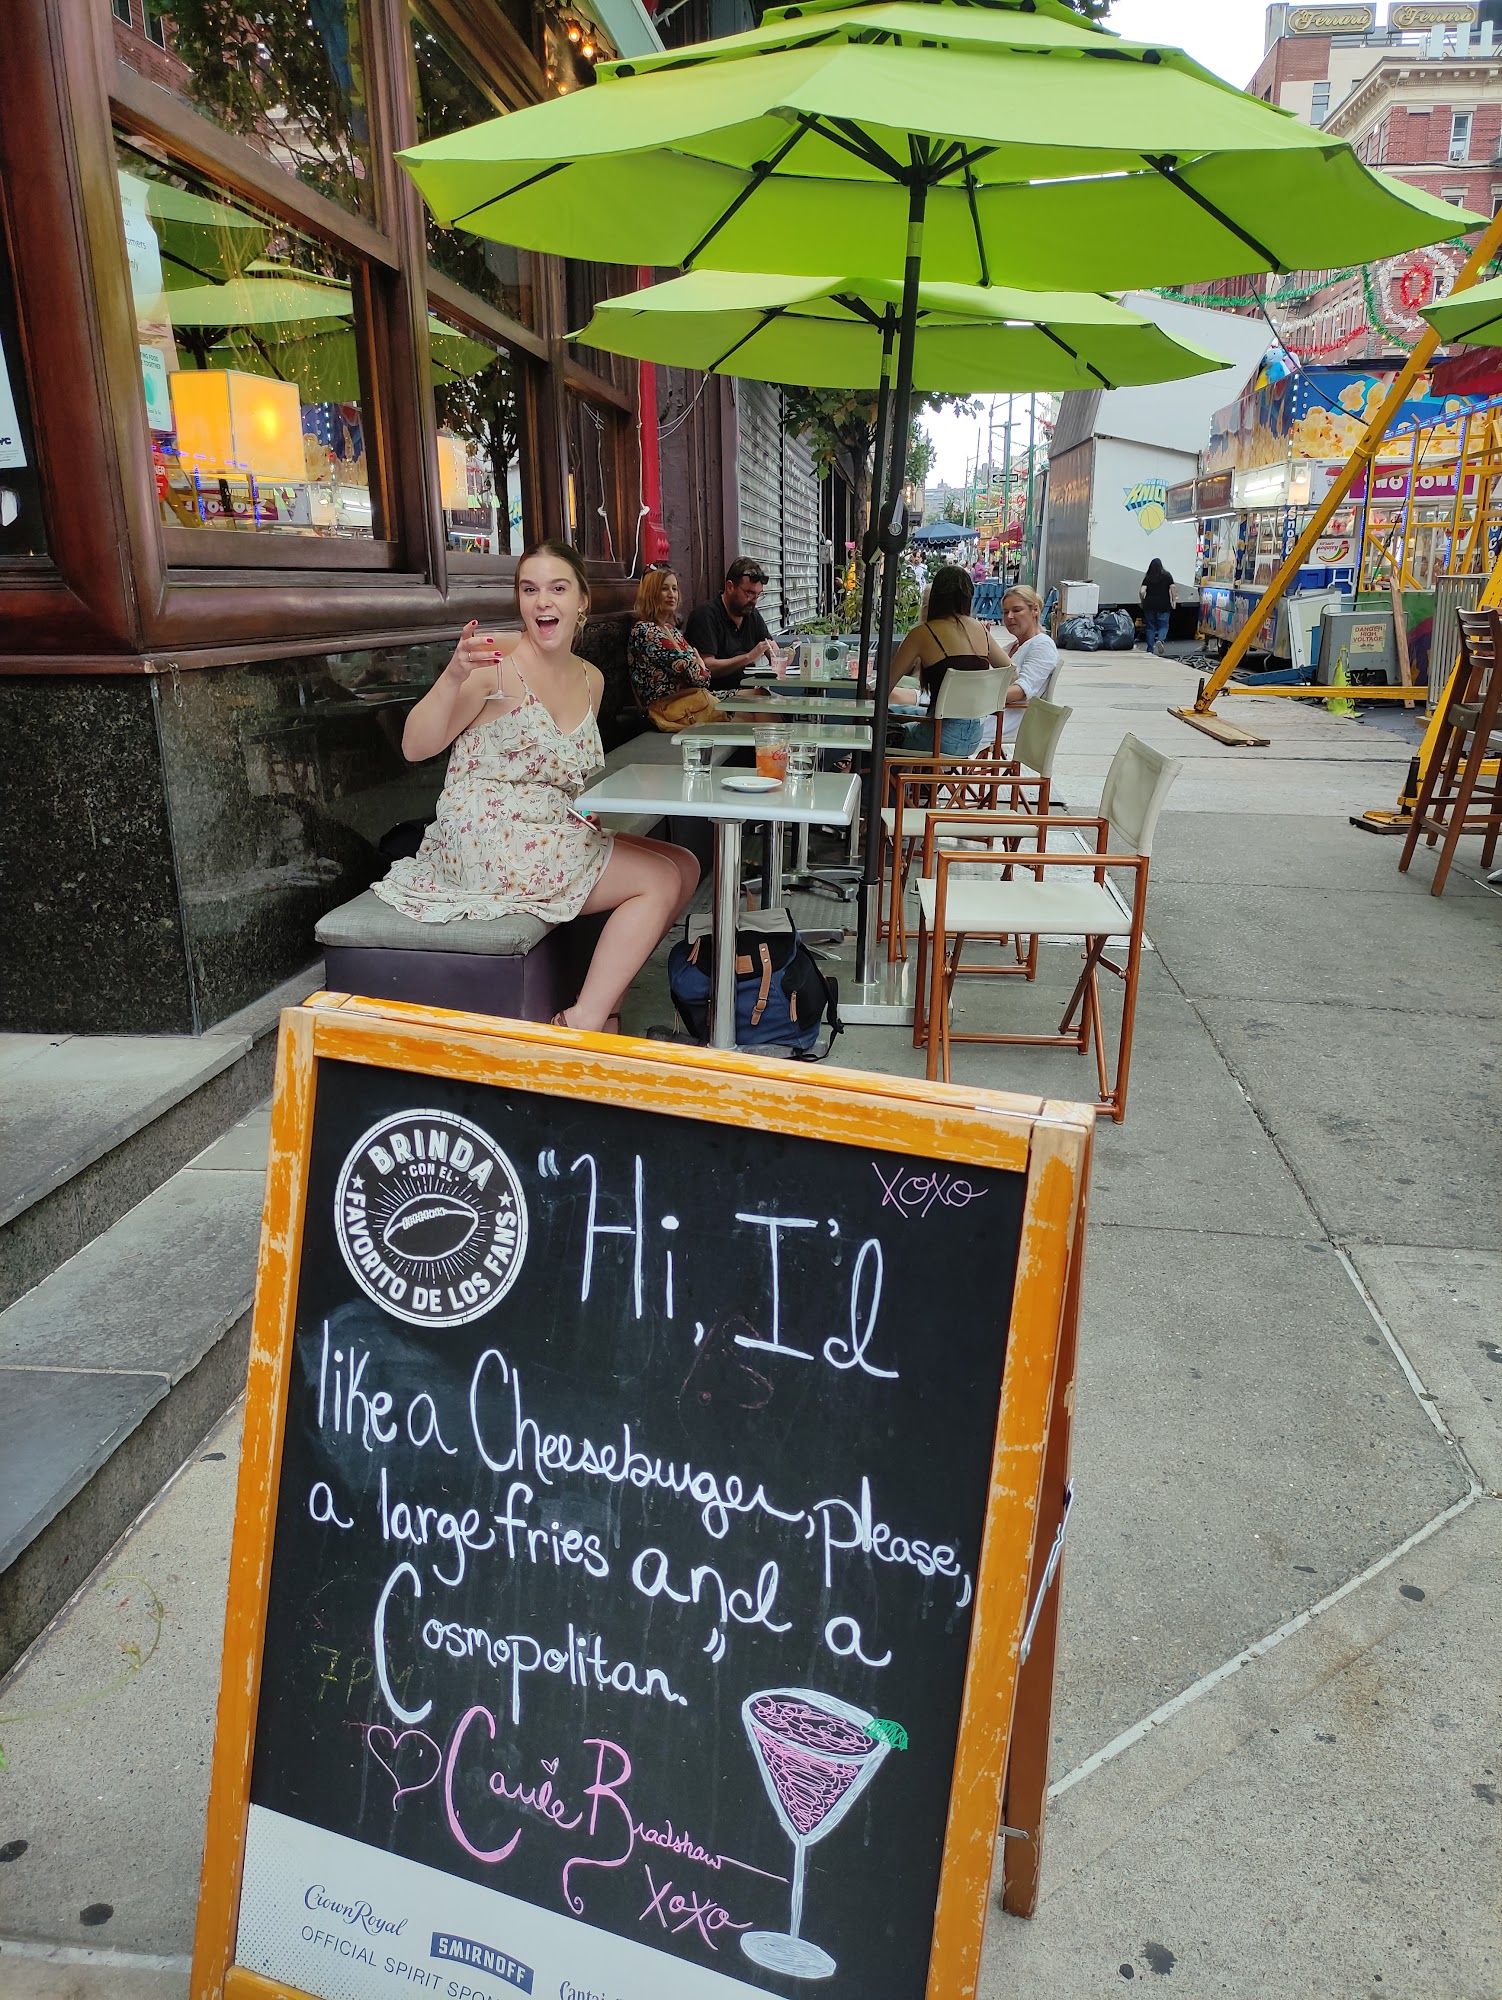 Ferrara
Ferrara
KNIC
DANGER
HIGH
VOLTAGE
BRINDA
·CON EL·
FAVORITO DE LOS FANS
XOXO
"Hi, I'd
like a Cheeseburger, please,
a large fries and a
Cosmopolitan."
7PM
Carrie Bradshaw
XOXO
Crown Royal
SMIRNOFF
OFFICIAL SPIRIT SPON